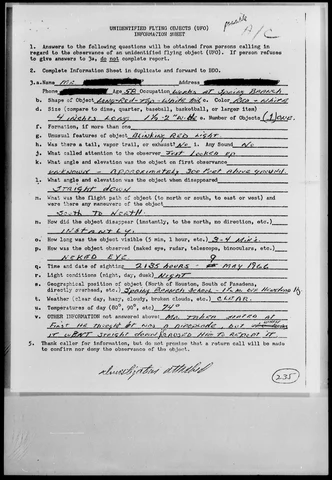 possible
A/C
UNIDENTIFIED FLYING OBJECTS (UFO)
INFORMATION SHEET
1. Answers to the following questions will be obtained from persons calling in
regard to the observance of an unidentified flying object (UFO). If person refuses
to give answers to 3a, do not complete report.
2. Complete Information Sheet in duplicate and forward to DDO.
3.a. Name MR. Address
Phone Age 58 Occupation Works at Spring Branch
b. Shape of Object Long-Red-Top-White Bot. c. Color Red & White
d. Size (compare to dime, quarter, basketball, or larger item)
4 inches Long 1½-2" Wide e. Number of Objects (1) one.
f. Formation, if more than one
g. Unusual features of object Blinking Red Light
h. Was there a tail, vapor trail, or exhaust No i. Any Sound No
j. What called attention to the observer Just Looked up
k. What angle and elevation was the object on first observance
unknown - Approximately 300 feet above ground
l. What angle and elevation was the object when disappeared
STRAIGHT DOWN
m. What was the flight path of object (north or south, to east or west) and
were there any maneuvers of the object
South To North.
n. How did the object disappear (instantly, to the north, no direction, etc.)
INSTANTLY.
o. How long was the object visible (5 min, 1 hour, etc.) 3-4 Min's
p. How was the object observed (naked eye, radar, telescope, binoculars, etc.)
NEKED EYE
q. Time and date of sighting 2135 hours - 9 MAY 1966
r. Light conditions (night, day, dusk) NIGHT
s. Geographical position of object (North of Houston, South of Pasadena,
directly overhead, etc.) Spring Branch School - 1½ m. on Hwy
t. Weather (clear day, hazy, cloudy, broken clouds, etc.) CLEAR.
u. Temperature of day (80°, 90°, etc) 74°
v. OTHER INFORMATION not answered above: Mr. stated at
First he thought it was a airplane, but when
it went straight down caused him to report it
5. Thank caller for information, but do not promise that a return call will be made
to confirm nor deny the observance of the object.
Investigation attached
235